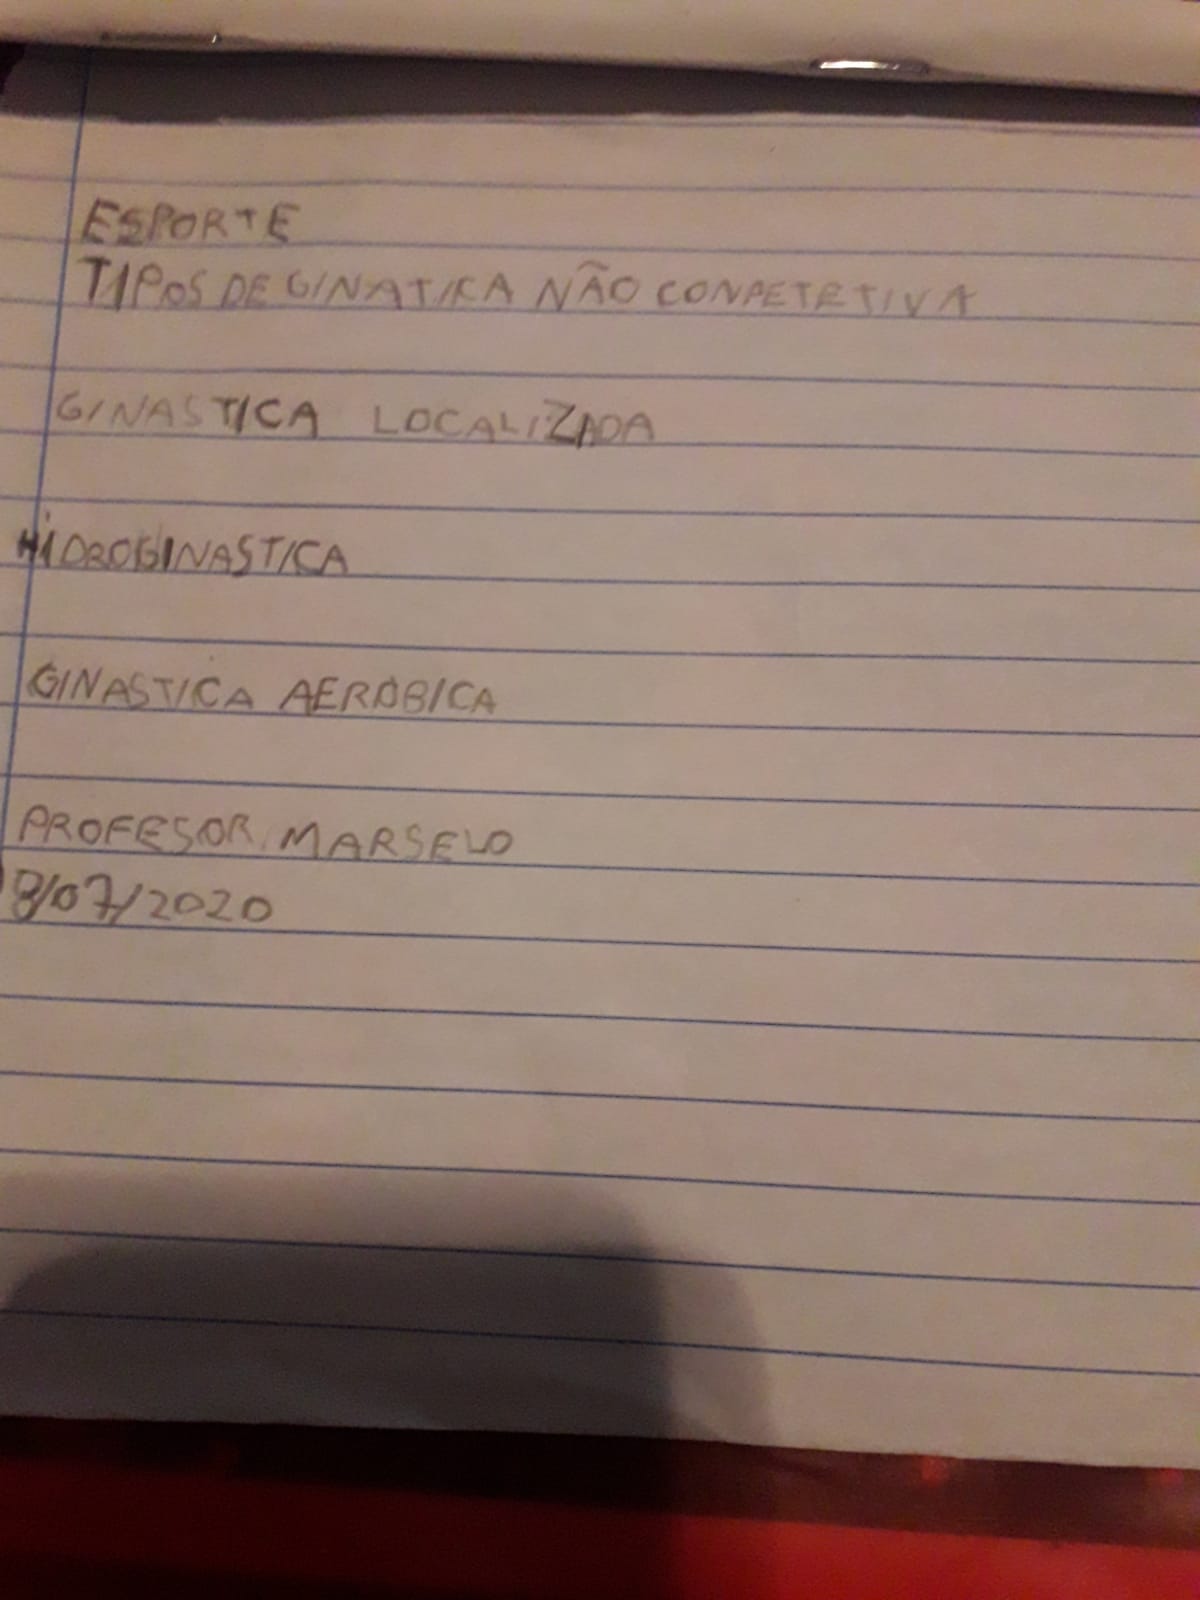 ESPORTE
TIPOS DE GINATICA NÃO CONPETETIVA
GINASTICA LOCALIZADA
HIDROGINASTICA
GINASTICA AERÓBICA
PROFESOR MARSELO
8/07/2020